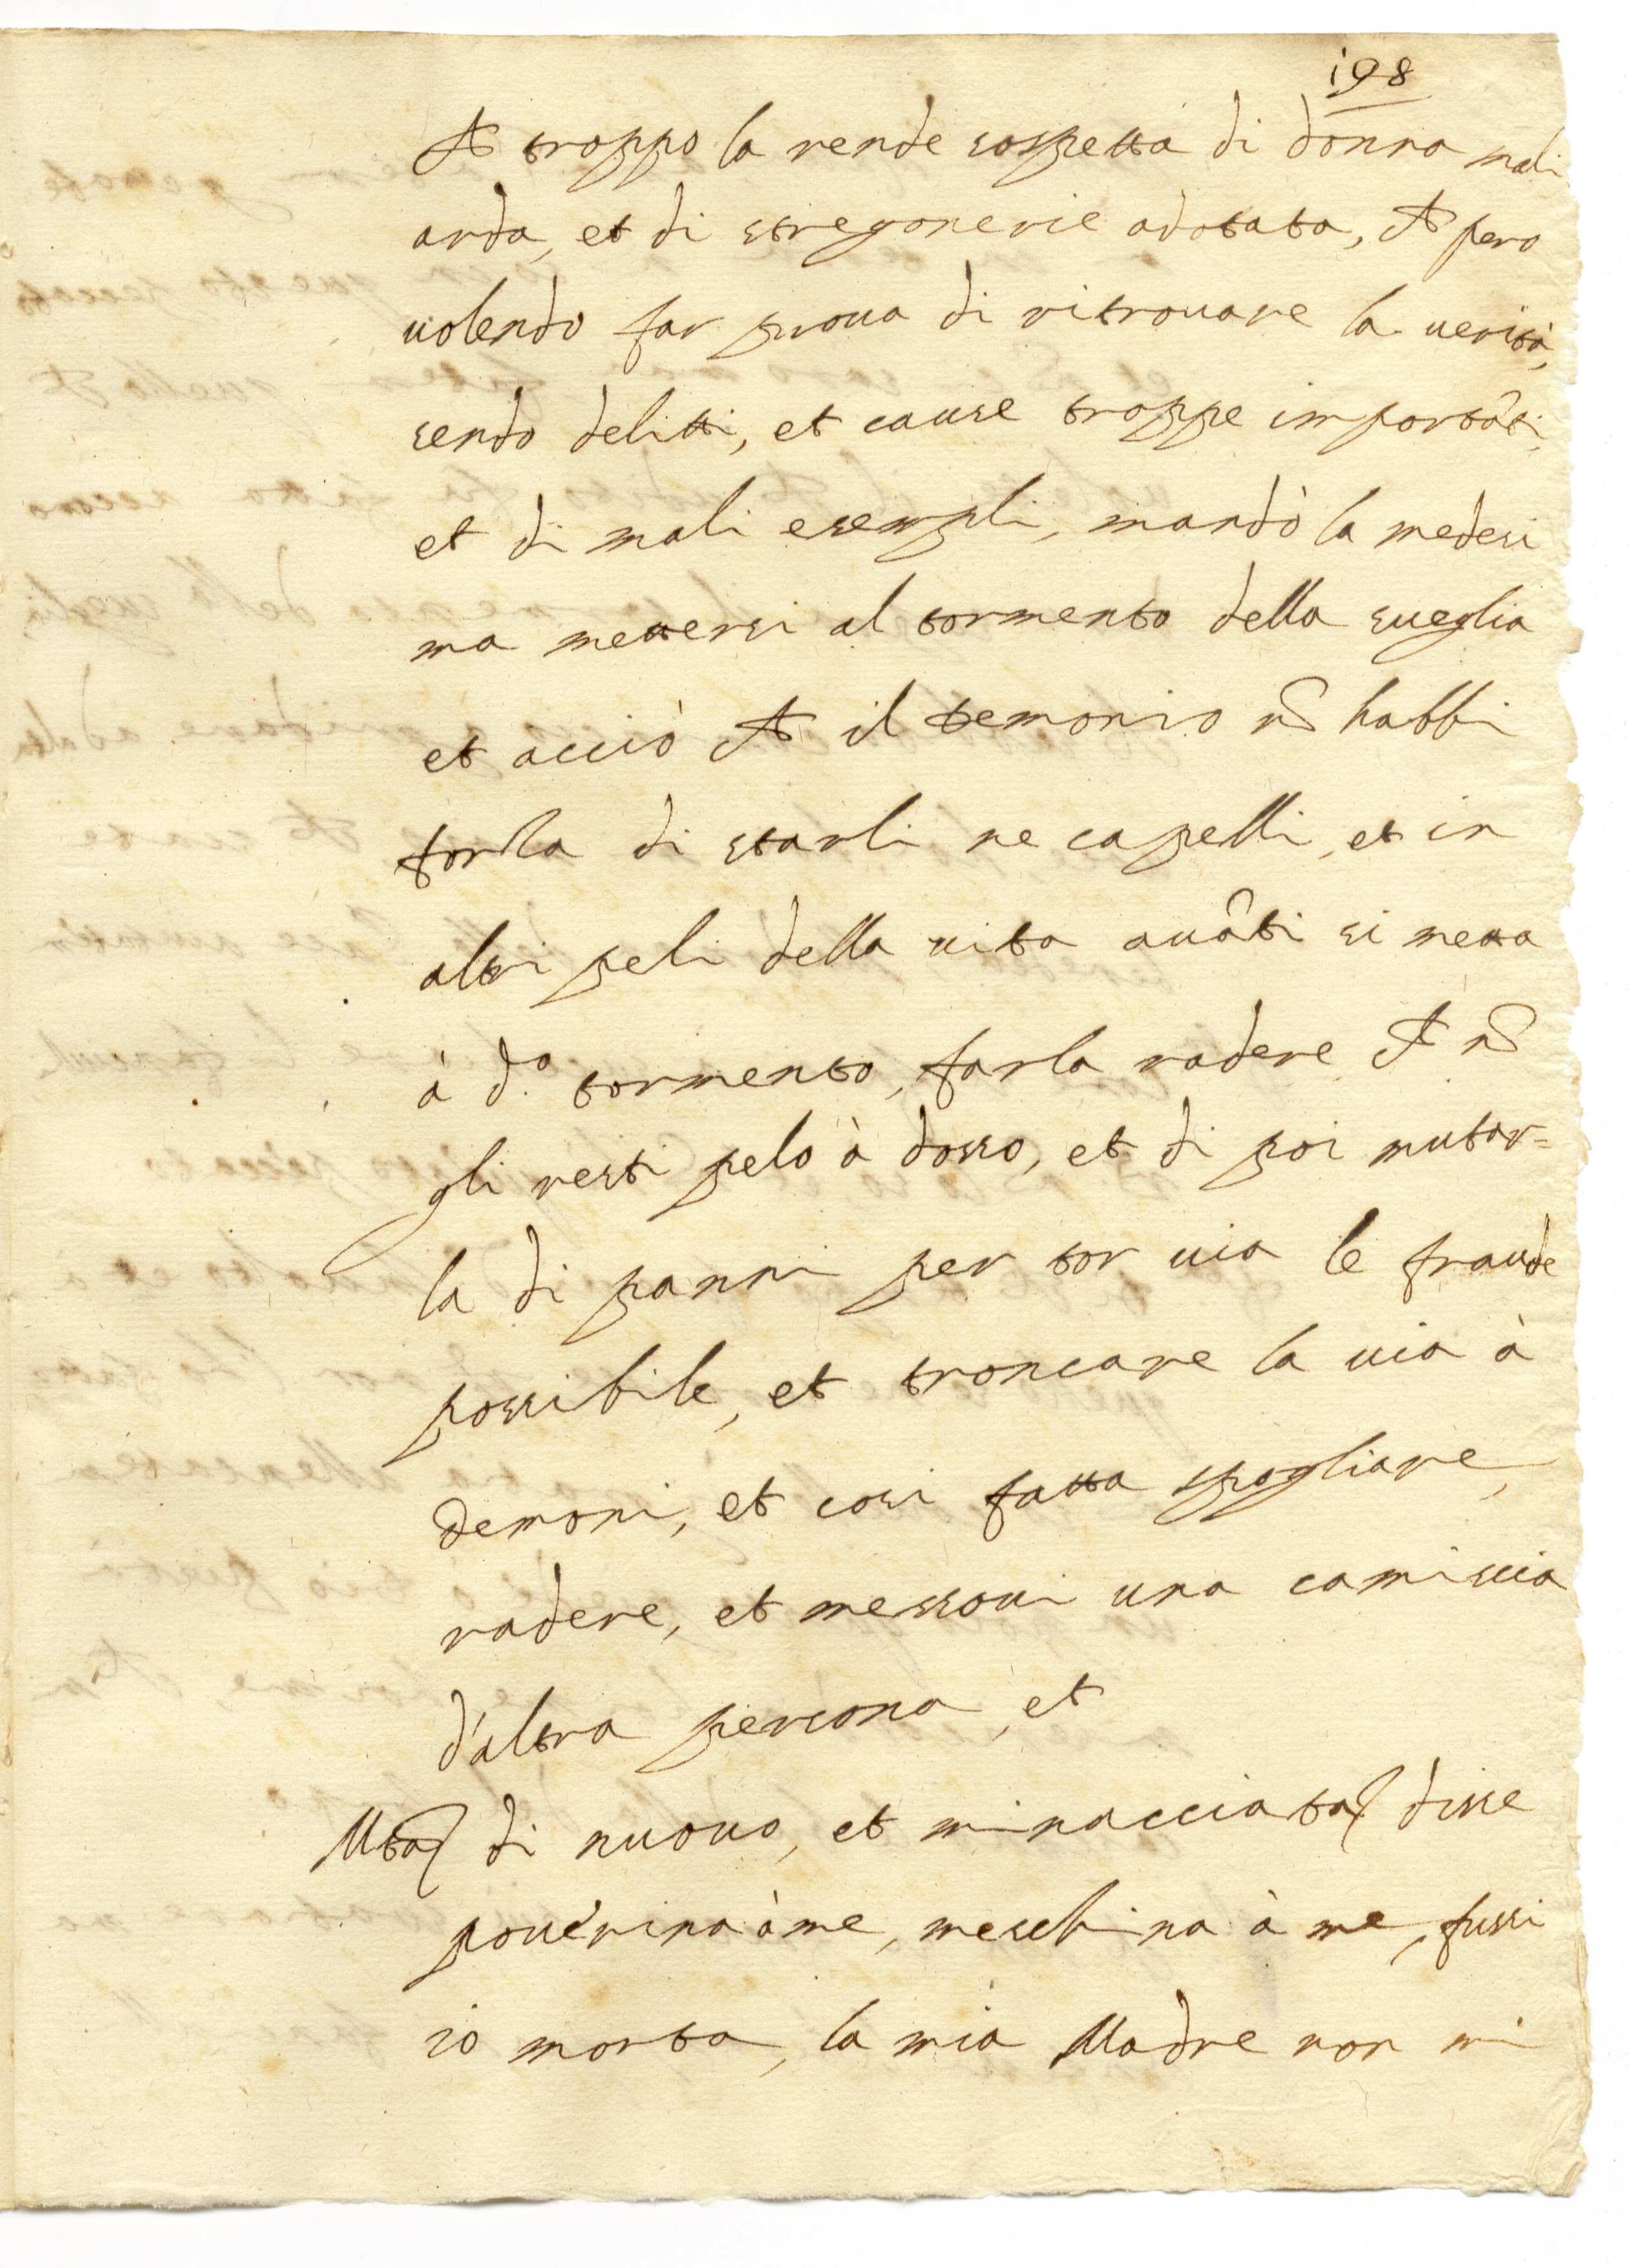 198
ch troppo la rende sospetta di donna mali
arda, et di stregonerie adotata, ch pero
uolendo far proua di ritrouare la uerità,
sendo delitti, et cause troppe importãti,
et di mali esempli, mandò la medesi
ma mettersi al tormento della sueglia
et acciò ch il demonio nõ habbi
forza di starli ne capelli, et in
altri peli della uita auãti si metta
à d.º tormento, farla radere ch nõ
gli resti pelo à dosso, et di poi mutar=
la di panni per tor uia le fraude
possibile, et troncare la uia à
demoni, et cosi fatta spogliare,
radere, et messoui una camiscia
d'altra persona, et
di nuouo, et minacciata disse
pouerina à me, meschina à me, fussi
io morta, la mia Madre non mi